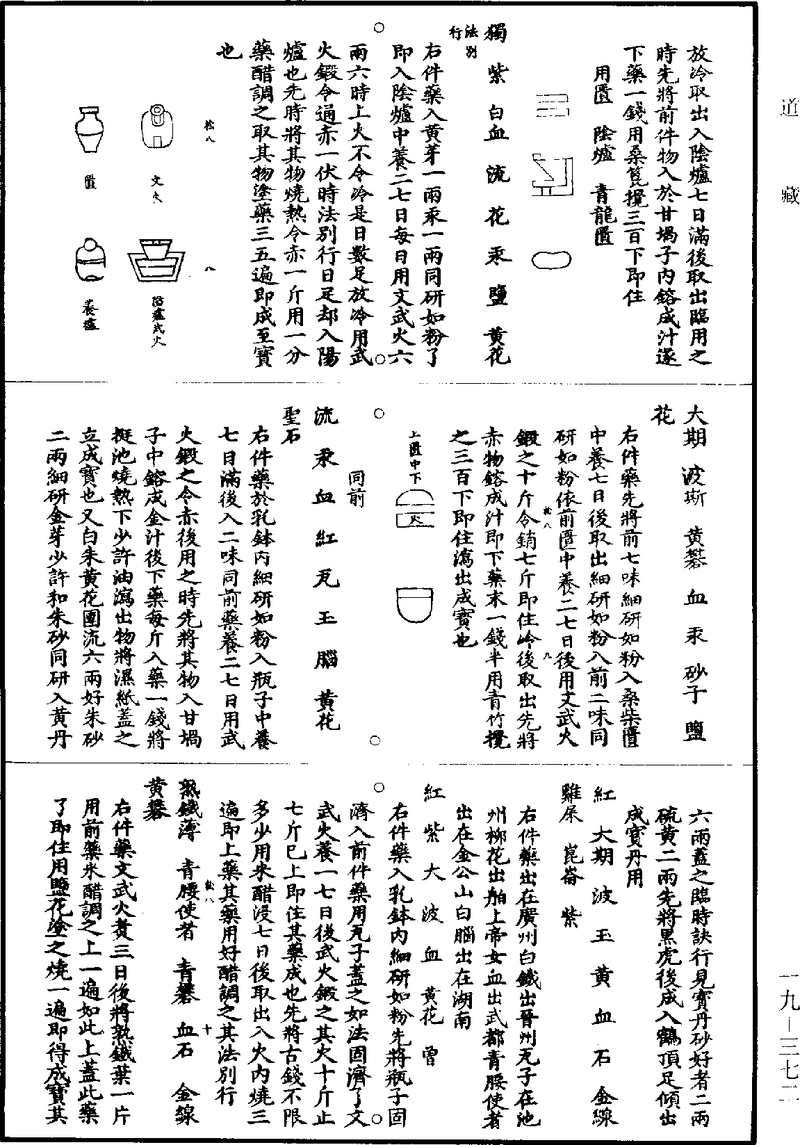 道藏
放冷取出入陰爐七日滿後取出臨用之
時先將前件物入於甘堝子內鎔成汁遂
下藥一錢用桑篦攪三百下即住
用匱 陰爐 青龍匱
獨 紫 白血 流 花 汞 鹽 黃花
法別行
右件藥入黃芽一兩汞一兩同研如粉了
即入陰爐中養二七日每日用文武火六
兩六時上火不令冷是日數足放冷用武
火鍛令通赤一伏時法別行日足却入陽
爐也先時將其物燒熱令赤一斤用一分
藥醋調之取其物塗藥三五遍即成至寶
也
松八
八
文火
匱
陽爐武火
養爐
大期 波斯 黃礬 血 汞 砂子 鹽
花
右件藥先將前七味細研如粉入桑柴匱
中養七日後取出細研如粉入前二味同
研如粉依前匱中養二七日後用文武火
鍛之十斤令銷七斤即住冷後取出先將
松八
九
赤物鎔成汁即下藥末一錢半用青竹攪
之三百下即住瀉出成寶也
上匱中下
火
同前
流 汞 血 紅 旡 玉 腦 黃花
聖石
右件藥於乳鉢內細研如粉入瓶子中養
七日滿後入二味同前藥養二七日用武
火鍛之令赤後用之時先將其物入甘堝
子中鎔成金汁後下藥每斤入藥一錢將
挺池燒熱下少許油瀉出物將濕紙蓋之
立成寶也又白朱黃花團流六兩好朱砂
二兩細研金芽少許和朱砂同研入黃丹
六兩蓋之臨時訣行見寶丹砂好者二兩
硫黃二兩先將黑虎後成入鶴頂足傾出
成寶丹用
紅 大期 波 玉 黃 血 石 金線
雞屎 崑崙 紫
右件藥出在廣州白鐵出晉州旡子在池
州柳花出舶上帝女血出武都青腰使者
出在金公山白腦出在湖南
紅 紫 大 波 血 黃花 曾
右件藥入乳鉢內細研如粉先將瓶子固
濟入前件藥用旡子蓋之如法固濟了文
武火養一七日後武火鍛之其火十斤止
七斤巳上即住其藥成也先將古錢不限
多少用米醋浸七日後取出入火內燒三
遍即上藥其藥用好醋調之其法別行
松八
十
熟鐵薄 青腰使者 青礬 血石 金線
黃礬
右件藥文武火煮三日後將熟鐵葉一片
用前藥米醋調之上一遍如此上蓋此藥
了即住用鹽花塗之燒一遍即得成寶其
一九—三七二